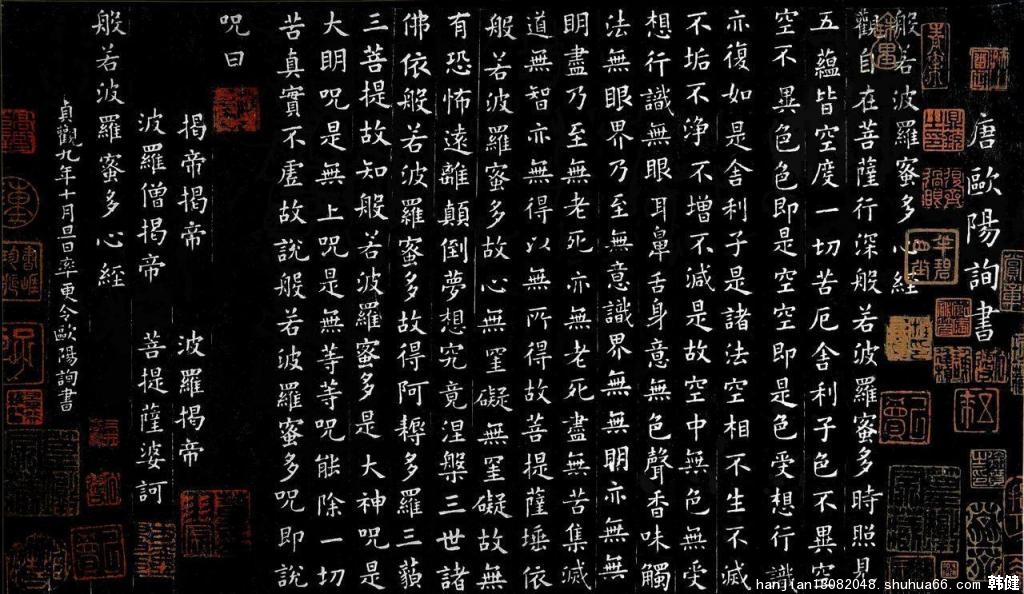 唐歐陽詢書
般若波羅蜜多心經
觀自在菩薩行深般若波羅蜜多時照見
五蘊皆空度一切苦厄舍利子色不異空
空不異色色即是空空即是色受想行識
亦復如是舍利子是諸法空相不生不滅
不垢不淨不增不減是故空中無色無受
想行識無眼耳鼻舌身意無色聲香味觸
法無眼界乃至無意識界無無明亦無無
明盡乃至無老死亦無老死盡無苦集滅
道無智亦無得以無所得故菩提薩埵依
般若波羅蜜多故心無罣礙無罣礙故無
有恐怖遠離顛倒夢想究竟涅槃三世諸
佛依般若波羅蜜多故得阿耨多羅三藐
三菩提故知般若波羅蜜多是大神咒是
大明咒是無上咒是無等等咒能除一切
苦真實不虛故說般若波羅蜜多咒即說
咒曰
揭帝揭帝 波羅揭帝
波羅僧揭帝 菩提薩婆訶
般若波羅蜜多心經
貞觀九年十月旦日率更令歐陽詢書
hanjian18082048.shuhua66.com 韩健